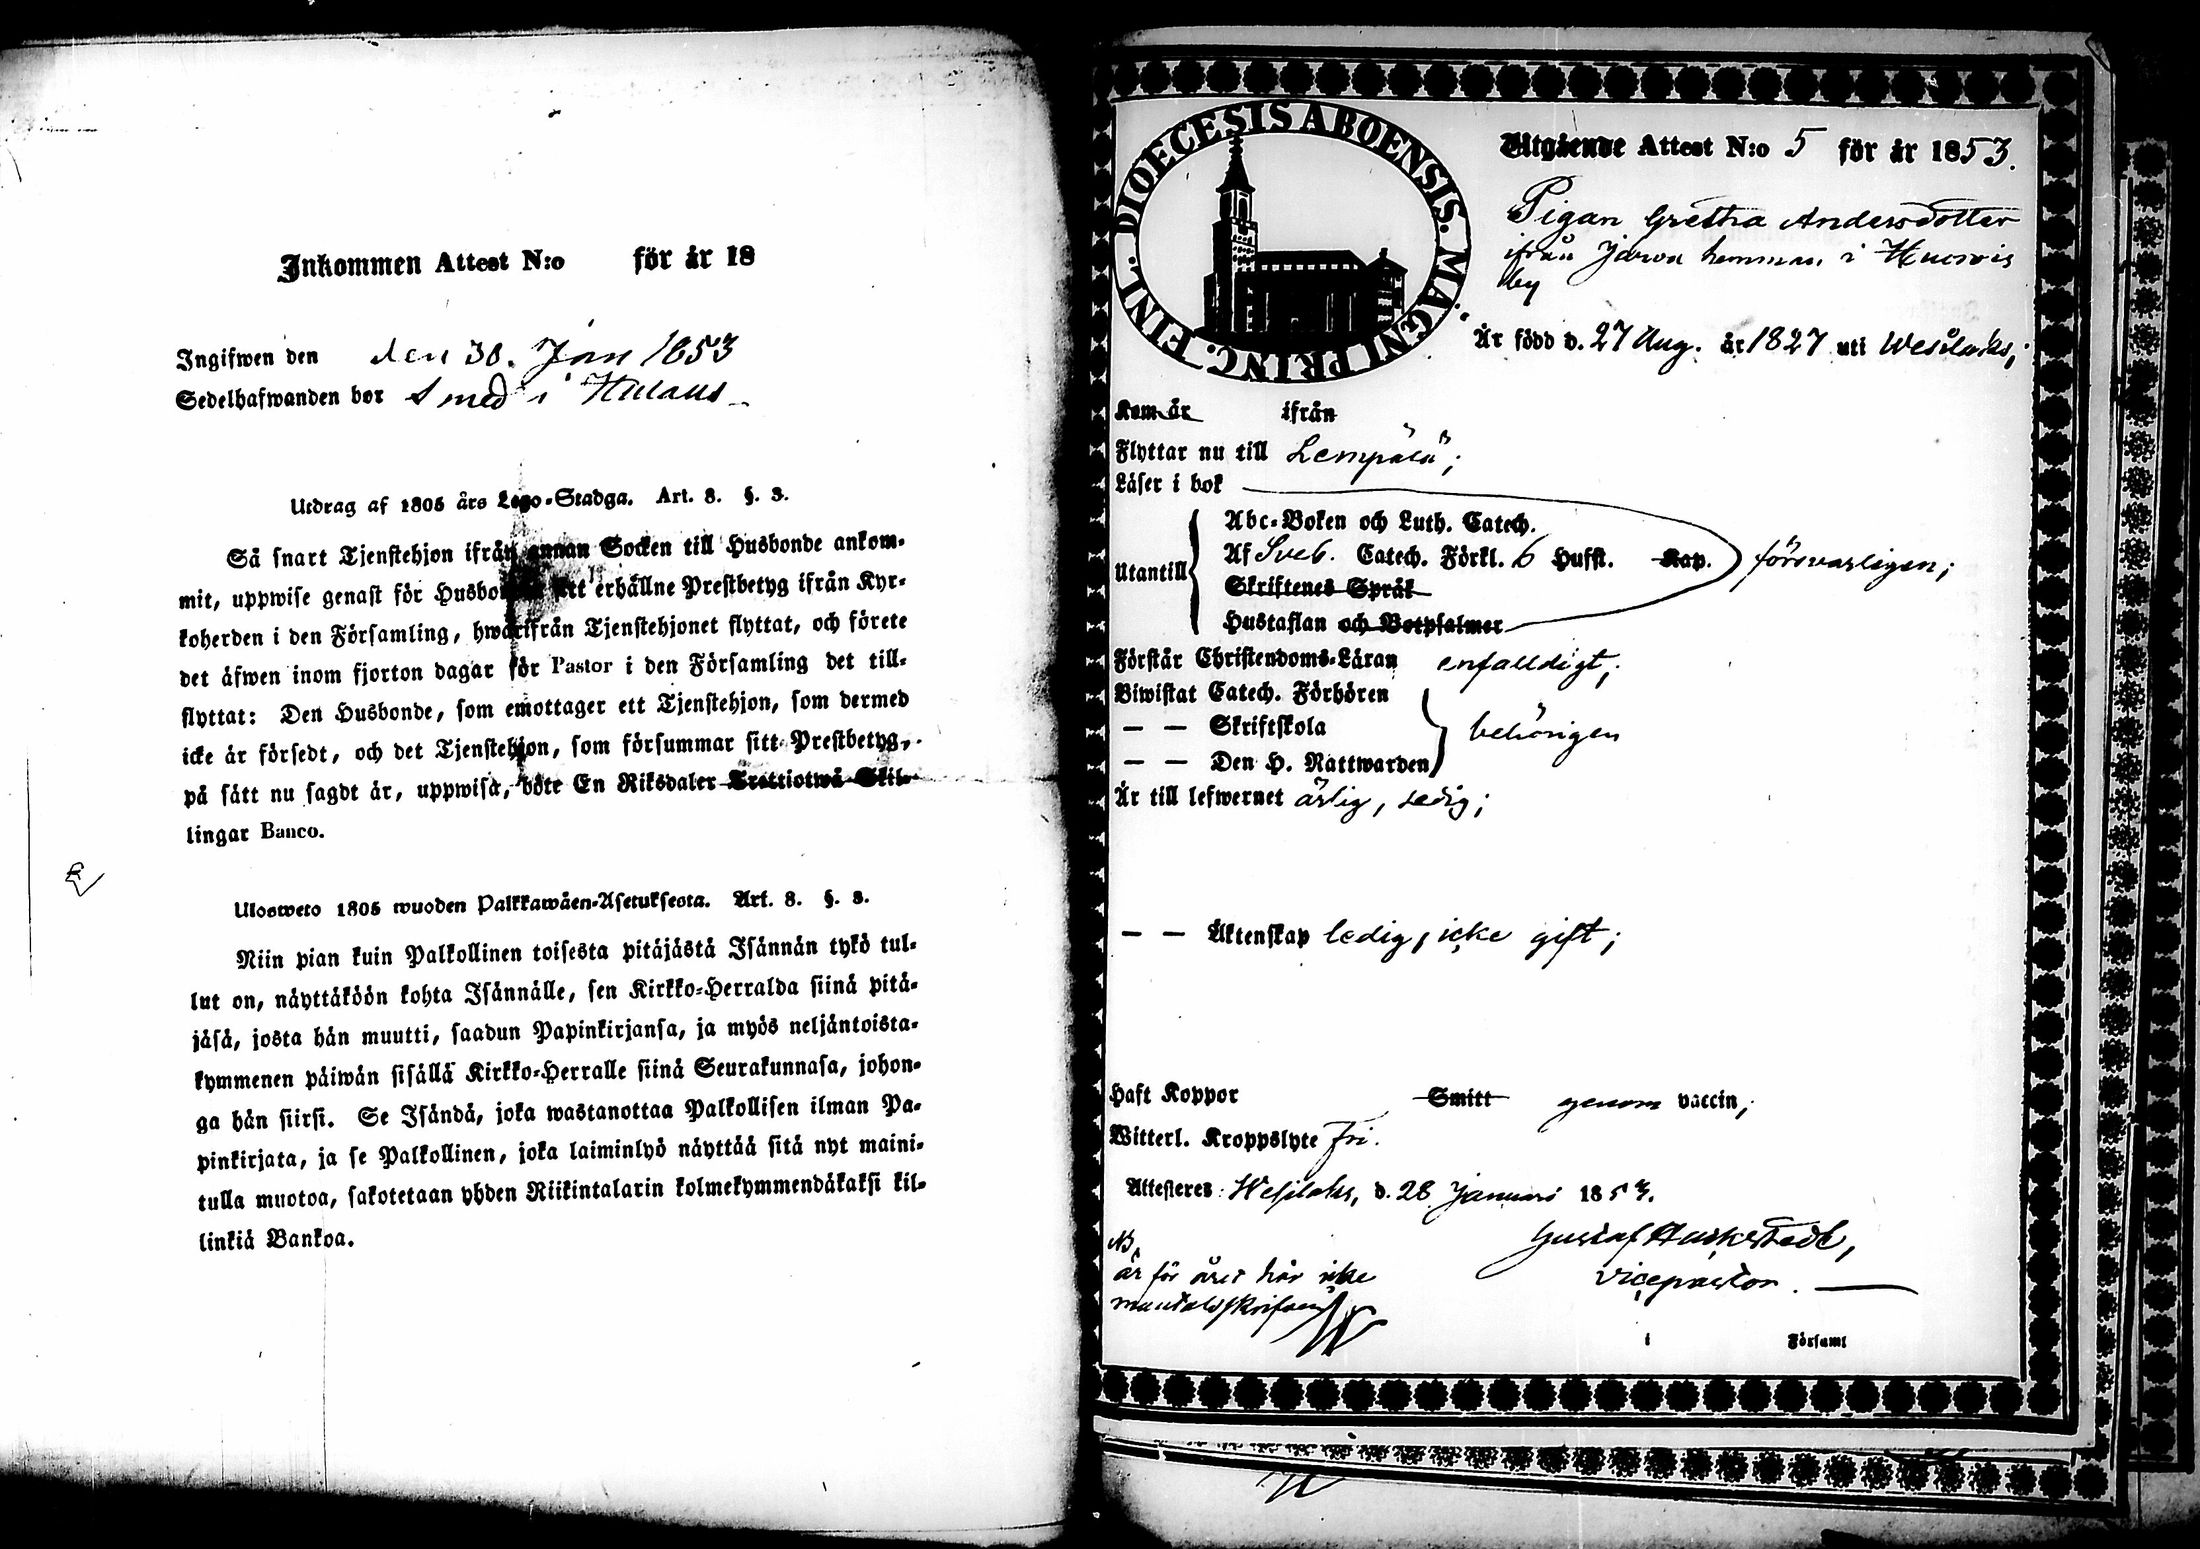 Inkommen Attest N:o för år 18
Ingifwen den den 30. Jan 1853
Sedelhafwanden bor Smed i
Utdrag af 1805 års Lego-Stadga. Art. 8. §. 3.
Så snart Tjenstehjon ifrån annan Socken till Husbonde ankom-
mit, uppwise genast för Husbonden sitt erhållne Prestbetyg ifrån Kyr-
koherden i den Församling, hwarifrån Tjenstehjonet flyttat, och förete
det äfwen inom fjorton dagar för Pastor i den Församling det till-
flyttat: Den Husbonde, som emottager ett Tjenstehjon, som dermed
icke är försedt, och det Tjenstehjon, som försummar sitt Prestbetyg,
på sätt nu sagdt är, uppwisa, böte En Riksdaler Trettiotwå Skil-
lingar Banco.
Ulosweto 1805 wuoden Palkkawäen-Asetuksesta. Art. 8. §. 3.
Niin pian kuin Palkollinen toisesta pitäjästä Isännän tykö tul-
lut on, näyttäköön kohta Isännälle, sen Kirkko-Herralda siinä pitä-
jäsä, josta hän muutti, saadun Papinkirjansa, ja myös neljäntoista-
kymmenen päiwän sisällä Kirkko-Herralle siinä Seurakunnasa, johon-
ga hän siirsi. Se Isändä, joka wastanottaa Palkollisen ilman Pa-
pinkirjata, ja se Palkollinen, joka laiminlyö näyttää sitä nyt maini-
tulla muotoa, sakotetaan yhden Riikintalarin kolmekymmendäkaksi kil-
linkiä Bankoa.
DIOECESIS ABOENSIS. MAGNI PRINC. FINL.
Utgående Attest N:o 5 för år 1853.
Pigan Gretha Andersdotter
ifrån Jarva hemman i
by
Är född d. 27 Aug. år 1827 uti Wesilaks;
Kom år ifrån
Flyttar nu till Lempälä;
Läser i bok
Abc-Boken och Luth. Catech.
Utantill Af Sveb. Catech. Förkl. 6 Hufst. Kap. försvarligen;
Skriftenes Språk
Hustaflan och Botpsalmer
Förstår Christendoms-Läran enfalldigt;
Biwistat Catech. Förhören
— — Skriftskola behörigen
— — Den H. Nattwarden
Är till lefwernet ärlig, sedig;
— — Äktenskap ledig, icke gift;
Haft Koppor Smitt genom vaccin;
Witterl. Kroppslyte fri.
Attesteres Wesilaks, d. 28 Januari 1853.
Gustaf
Vicepastor.
NB.
är för året här icke
mantalsskrifven
i Församl